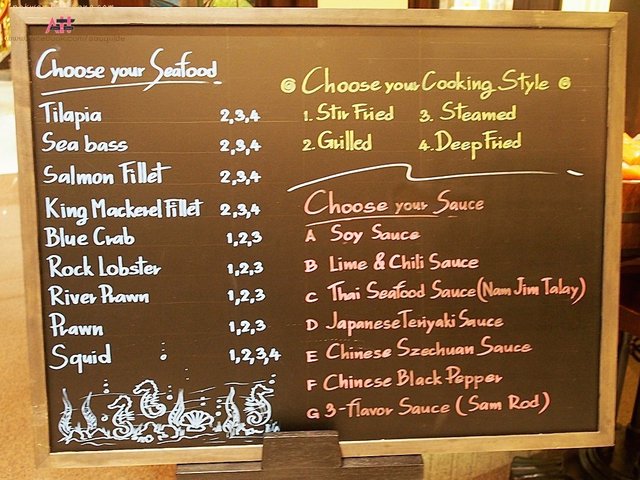 Choose your Seafood
Tilapia 2,3,4
Sea bass 2,3,4
Salmon Fillet 2,3,4
King Mackerel Fillet 2,3,4
Blue Crab 1,2,3
Rock Lobster 1,2,3
River Prawn 1,2,3
Prawn 1,2,3
Squid 1,2,3,4
Choose your Cooking Style
1. Stir Fried 3. Steamed
2. Grilled 4. Deep Fried
Choose your Sauce
A Soy Sauce
B Lime & Chili Sauce
C Thai Seafood Sauce (Nam Jim Talay)
D Japanese Teriyaki Sauce
E Chinese Szechuan Sauce
F Chinese Black Pepper
G 3-flavor Sauce (Sam Rod)